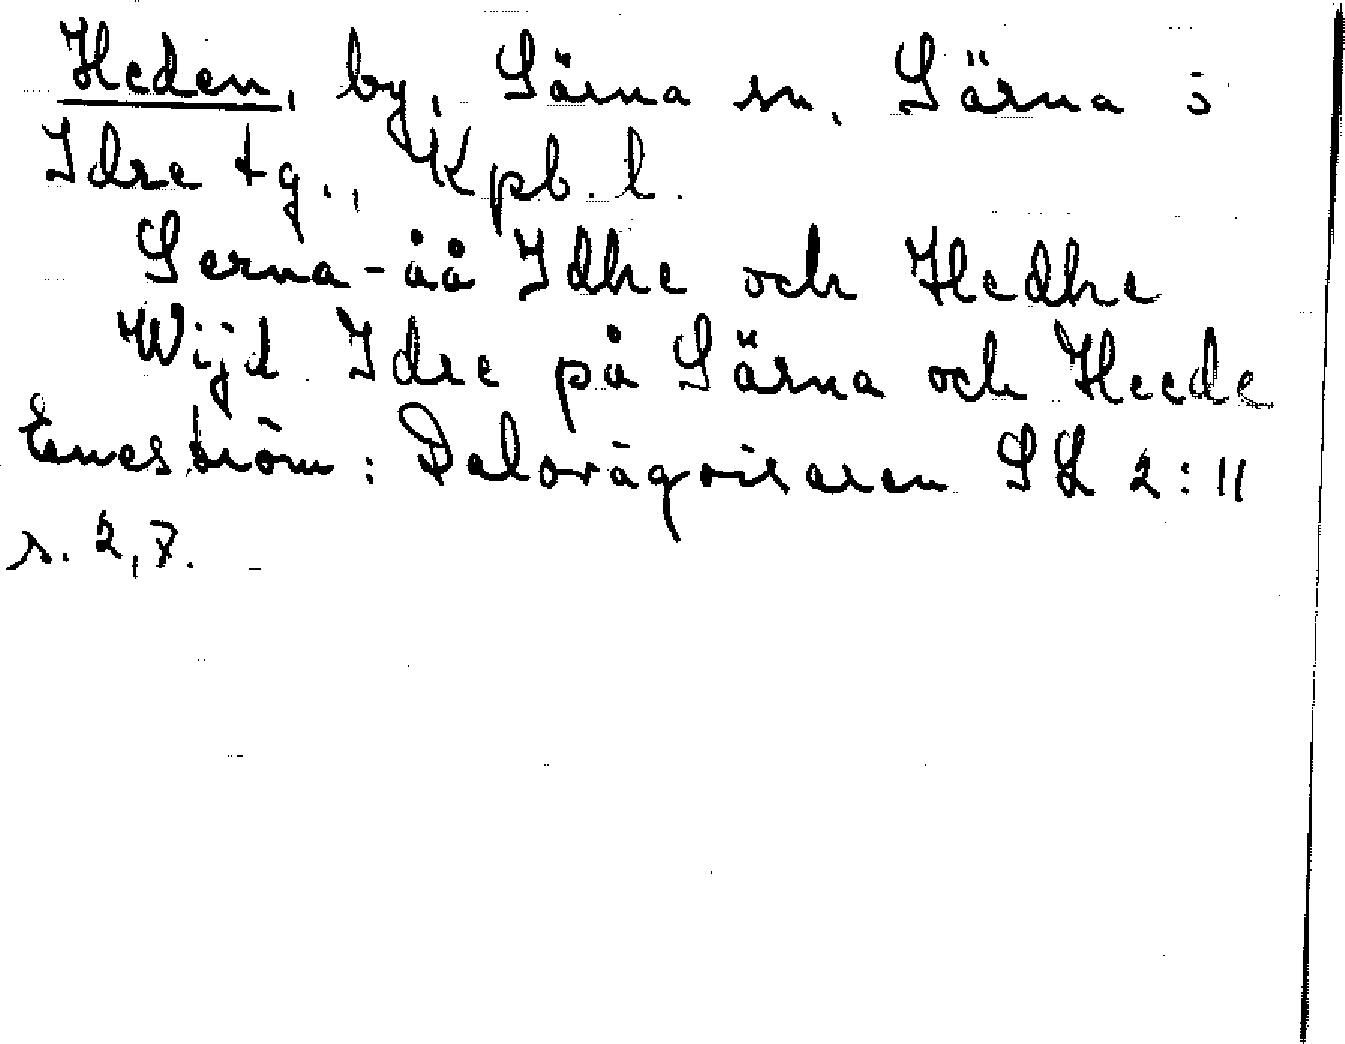 Heden, by, Särna sn, Särna o
Idre tg., Kpb. l.
Serna-åå Idhe och Hedhe
Wijd Idre på Särna och Heede
Eneström: Dalavägvisaren SL 2:11
s. 2, 8.